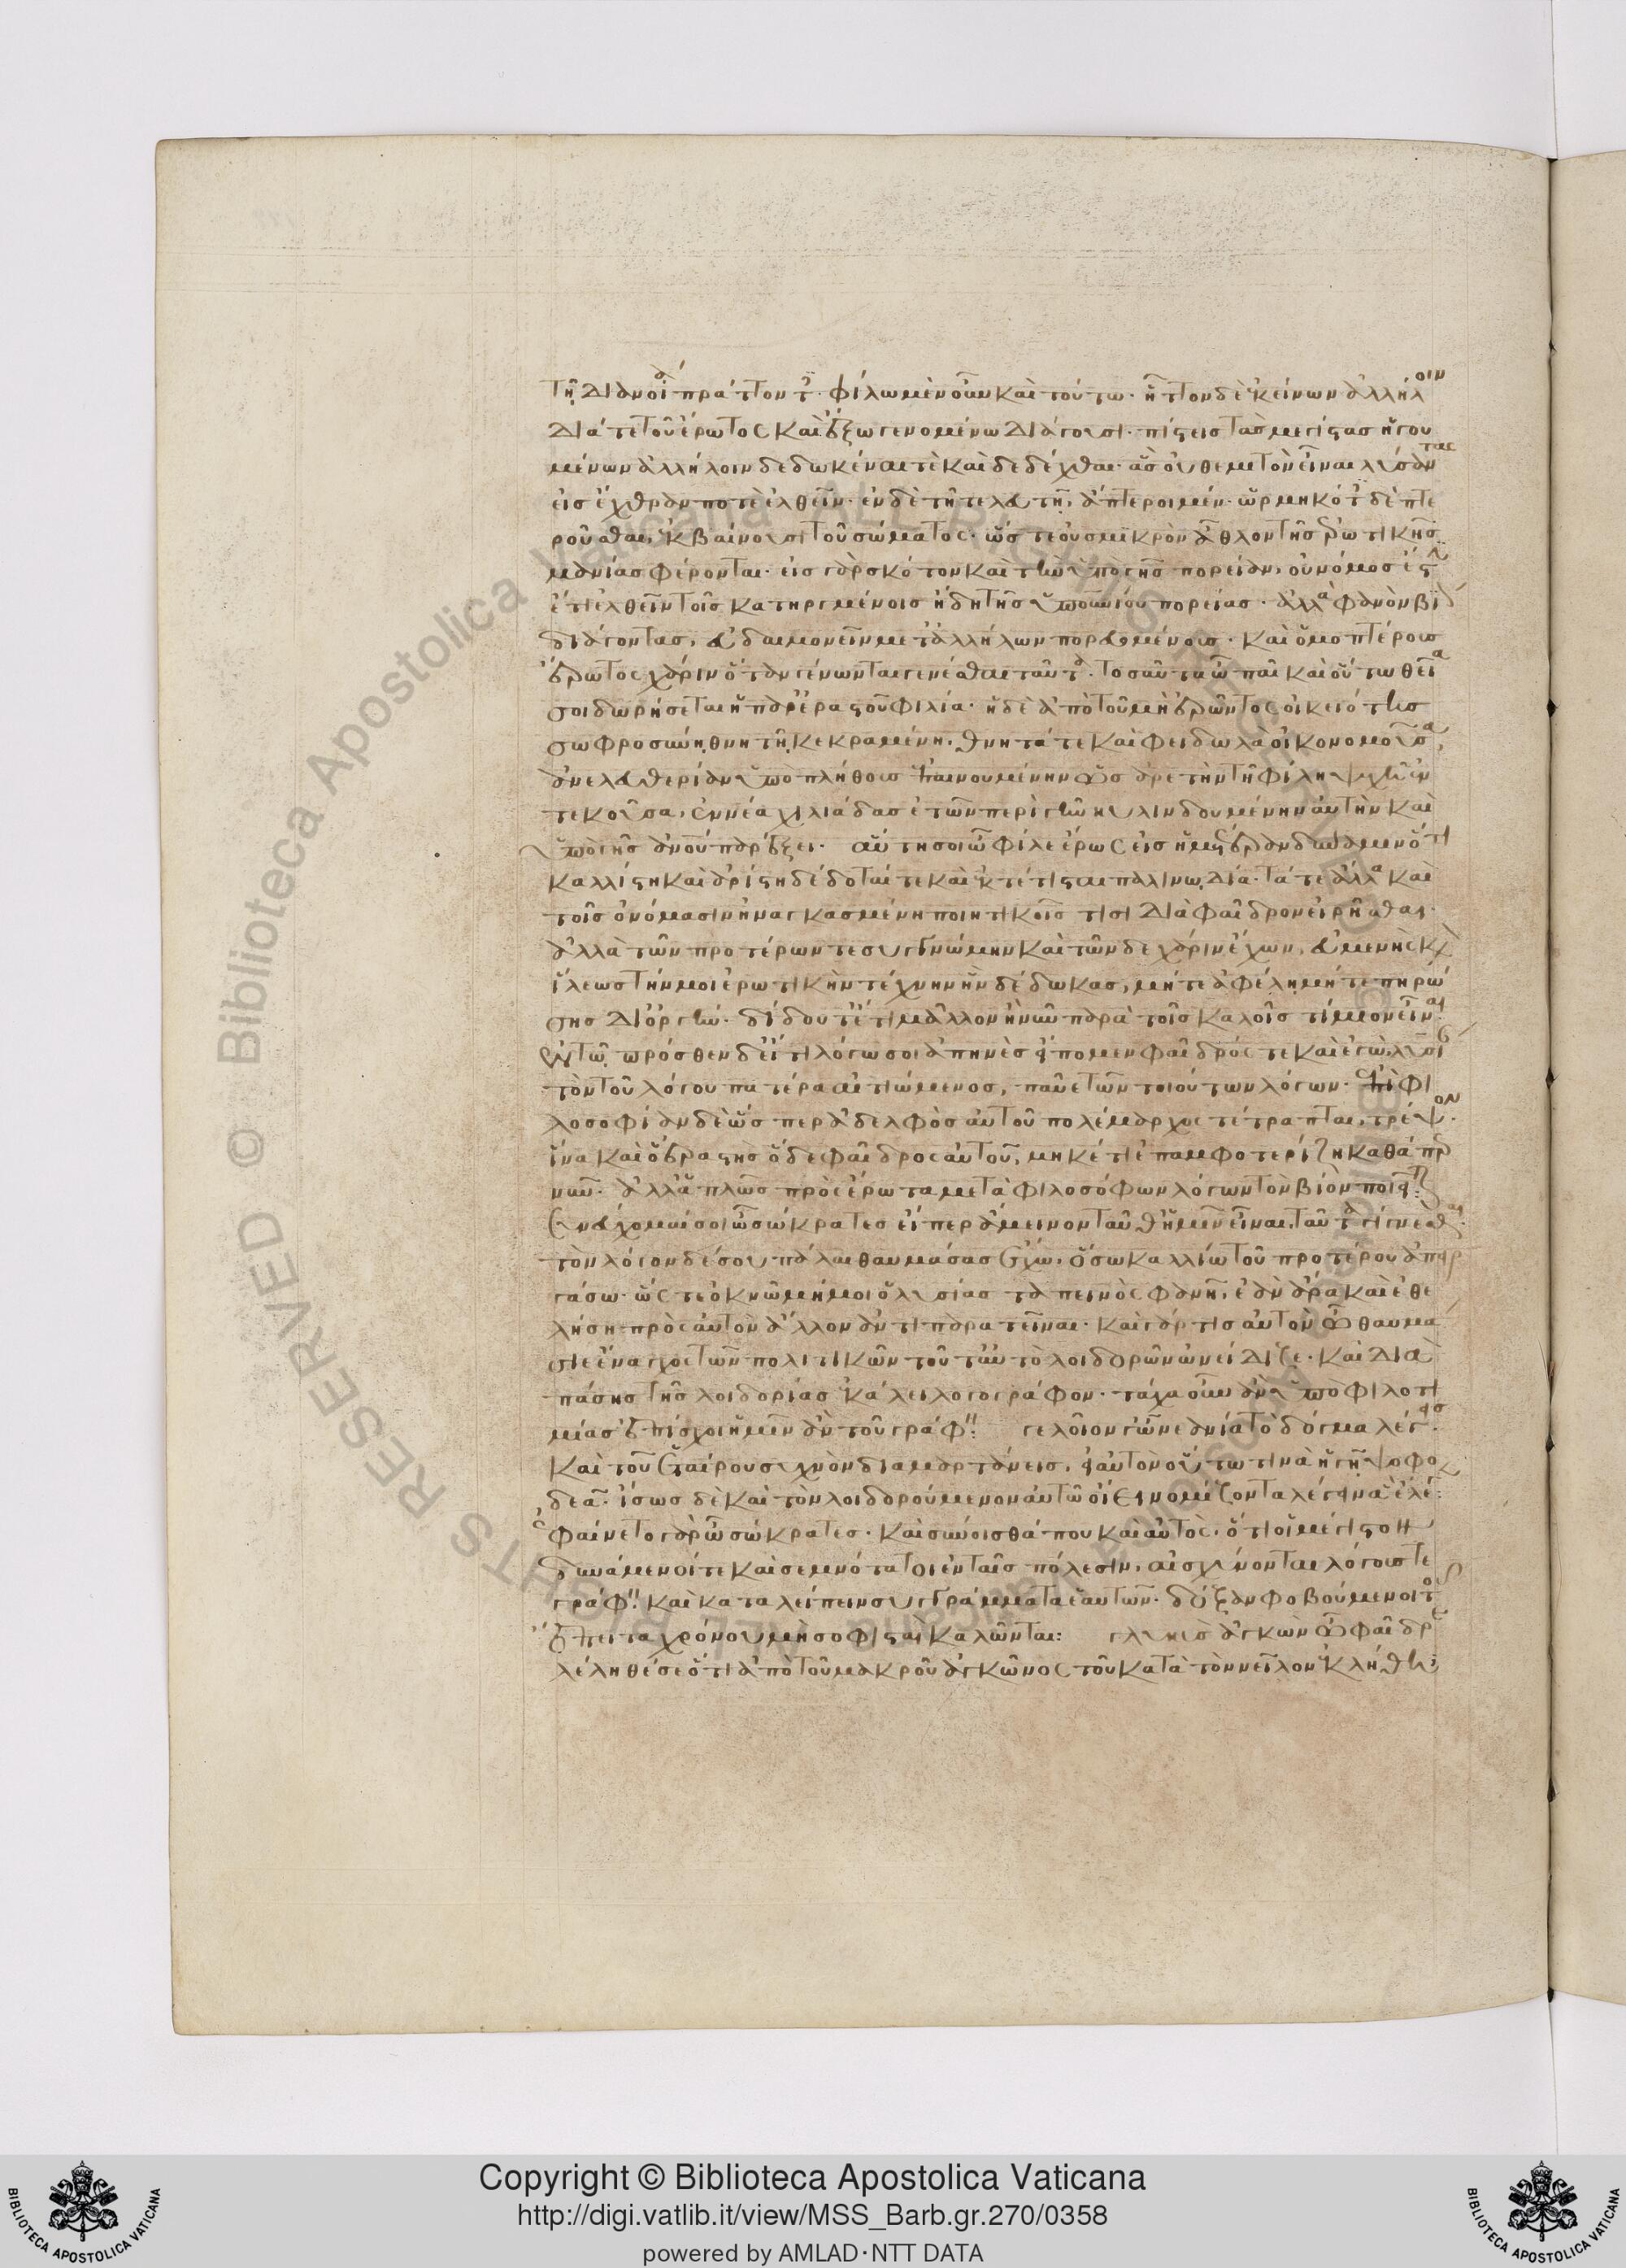 τῆ διανοία πράττοντες· φίλω μὲν οὖν καὶ τούτω· ἧττον δὲ κείνων ἀλλήλοιν
διά τε τοῦ ἔρωτος καὶ ἔξω γενομένω διάγουσι· πίστεις τὰς μεγίστας ἡγου
μένων ἀλλήλοιν δεδωκέναι τὲ καὶ δεδέχθαι· ἃς οὐ θεμιτὸν εἶναι λύσαντας
εἰς ἔχθραν ποτὲ ἐλθεῖν· ἐν δὲ τῆ τελευτῆ, ἄπτεροι μέν· ὡρμηκότες δὲ πτε
ροῦσθαι, ἐκβαίνουσι τοῦ σώματος· ὥστε οὐ σμικρὸν ἆθλον τῆς ἐρωτικῆς
μανίας φέρονται· εἰς γὰρ σκότον καὶ τὴν ὑπὸ γῆς πορείαν, οὐ νόμος ἐστὶν
ἔτι ἐλθεῖν τοῖς κατηργμένοις ἤδη τῆς ὑπουρανίου πορείας· ἀλλὰ φανὸν βίον
διάγοντας, εὐδαιμονεῖν μετ' ἀλλήλων πορευομένους· καὶ ὁμοπτέρους
ἔρωτος χάριν ὅταν γένωνται γενέσθαι· ταῦτα τοσαῦτα ὦ παῖ καὶ οὕτω θεῖα
σοι δωρήσεται ἡ παρ' ἐραστοῦ φιλία· ἡ δὲ ἀπὸ τοῦ μὴ ἐρῶντος οἰκειότης
σωφροσύνη θνητῆ κεκραμένη, θνητά τε καὶ φειδωλὰ οἰκονομοῦσα,
ἀνελευθερίαν ὑπὸ πλήθους ἐπαινουμένην ὡς ἀρετὴν τῆ φίλη ψυχῆ ἐν
τεκοῦσα, ἐννέα χιλιάδας ἐτῶν περὶ γῆν κυλινδουμένην αὐτὴν καὶ
ὑπὸ γῆς ἄνουν παρέξει· αὕτη σοι ὦ φίλε ἔρως εἰς ἡμετέραν δύναμιν ὅτι
καλλίστη καὶ ἀρίστη δέδοταί τε καὶ ἐκτέτισται παλινωδία· τά τε ἄλλα καὶ
τοῖς ὀνόμασιν ἠναγκασμένη ποιητικοῖς τισι διὰ φαῖδρον εἰρῆσθαι·
ἀλλὰ τῶν προτέρων τε συγγνώμην καὶ τῶνδε χάριν ἔχων, εὐμενὴς καὶ
ἵλεως τήν μοι ἐρωτικὴν τέχνην ἣν δέδωκας, μήτε ἀφέλη μήτε πηρώ
σης δι' ὀργήν· δίδου τ' ἔτι μᾶλλον ἢ νῦν παρὰ τοῖς καλοῖς τίμιον εἶναι·
ἐν τῶ πρόσθεν δ' εἴ τι λόγω σοι ἀπηνὲς εἴπομεν φαῖδρός τε καὶ ἐγώ, λυσί
τὸν τοῦ λόγου πατέρα αἰτιώμενος, παῦε τῶν τοιούτων λόγων· ἐπὶ φι
λοσοφίαν δὲ ὥσπερ ἀδελφὸς αὐτοῦ πολέμαρχος τέτραπται, τρέψον·
ἵνα καὶ ὁ ἐραστὴς ὅδε φαῖδρος αὐτοῦ, μηκέτι ἐπαμφοτερίζη καθάπερ
νῦν· ἀλλ' ἁπλῶς πρὸς ἔρωτα μετὰ φιλοσόφων λόγων τὸν βίον ποιῆται:
συνεύχομαί σοι ὦ σώκρατες εἴπερ ἄμεινον ταῦθ' ἡμῖν εἶναι, ταῦτα γίγνεσθαι·
τὸν λόγον δέ σου πάλαι θαυμάσας ἔχω, ὅσω καλλίω τοῦ προτέρου ἀπειρ
γάσω· ὥστε ὀκνῶ μή μοι ὁ λυσίας ταπεινὸς φανῆ, ἐὰν ἄρα καὶ ἐθε
λήση πρὸς αὐτὸν ἄλλον ἀντιπαρατεῖναι· καὶ γάρ τις αὐτὸν ὦ θαυμά
σιε ἔναγχος τῶν πολιτικῶν τοῦτ' αὐτὸ λοιδορῶν ὠνείδιζε· καὶ διὰ
πάσης τῆς λοιδορίας ἐκάλει λογογράφον· τάχα οὖν ἂν ὑπὸ φιλοτι
μίας ἐπίσχοι ἡμῖν ἂν τοῦ γράφειν: γελοῖον γ' ὦ νεανία τὸ δόγμα λέγεις·
καὶ τοῦ ἑταίρου συχνὸν διαμαρτάνεις, εἰ αὐτὸν οὕτω τινὰ ἡγῆ ψοφο
δεᾶ· ἴσως δὲ καὶ τὸν λοιδορούμενον αὐτῶ οἴει νομίζοντα λέγειν ἃ ἔλεγεν:
ἐφαίνετο γὰρ ὦ σώκρατες· καὶ σύνοισθά που καὶ αὐτὸς, ὅτι οἱ μέγιστον
δυνάμενοί τε καὶ σεμνότατοι ἐν ταῖς πόλεσιν, αἰσχύνονται λόγους τε
γράφειν καὶ καταλείπειν συγγράμματα ἑαυτῶν· δόξαν φοβούμενοι τοῦ
ἔπειτα χρόνου μὴ σοφισταὶ καλῶνται: γλυκὺς ἀγκὼν ὦ φαῖδρε
λέληθέ σε ὅτι ἀπὸ τοῦ μακροῦ ἀγκῶνος τοῦ κατὰ τὸν νεῖλον ἐκλήθη·
Copyright © Biblioteca Apostolica Vaticana
http://digi.vatlib.it/view/MSS_Barb.gr.270/0358
powered by AMLAD·NTT DATA